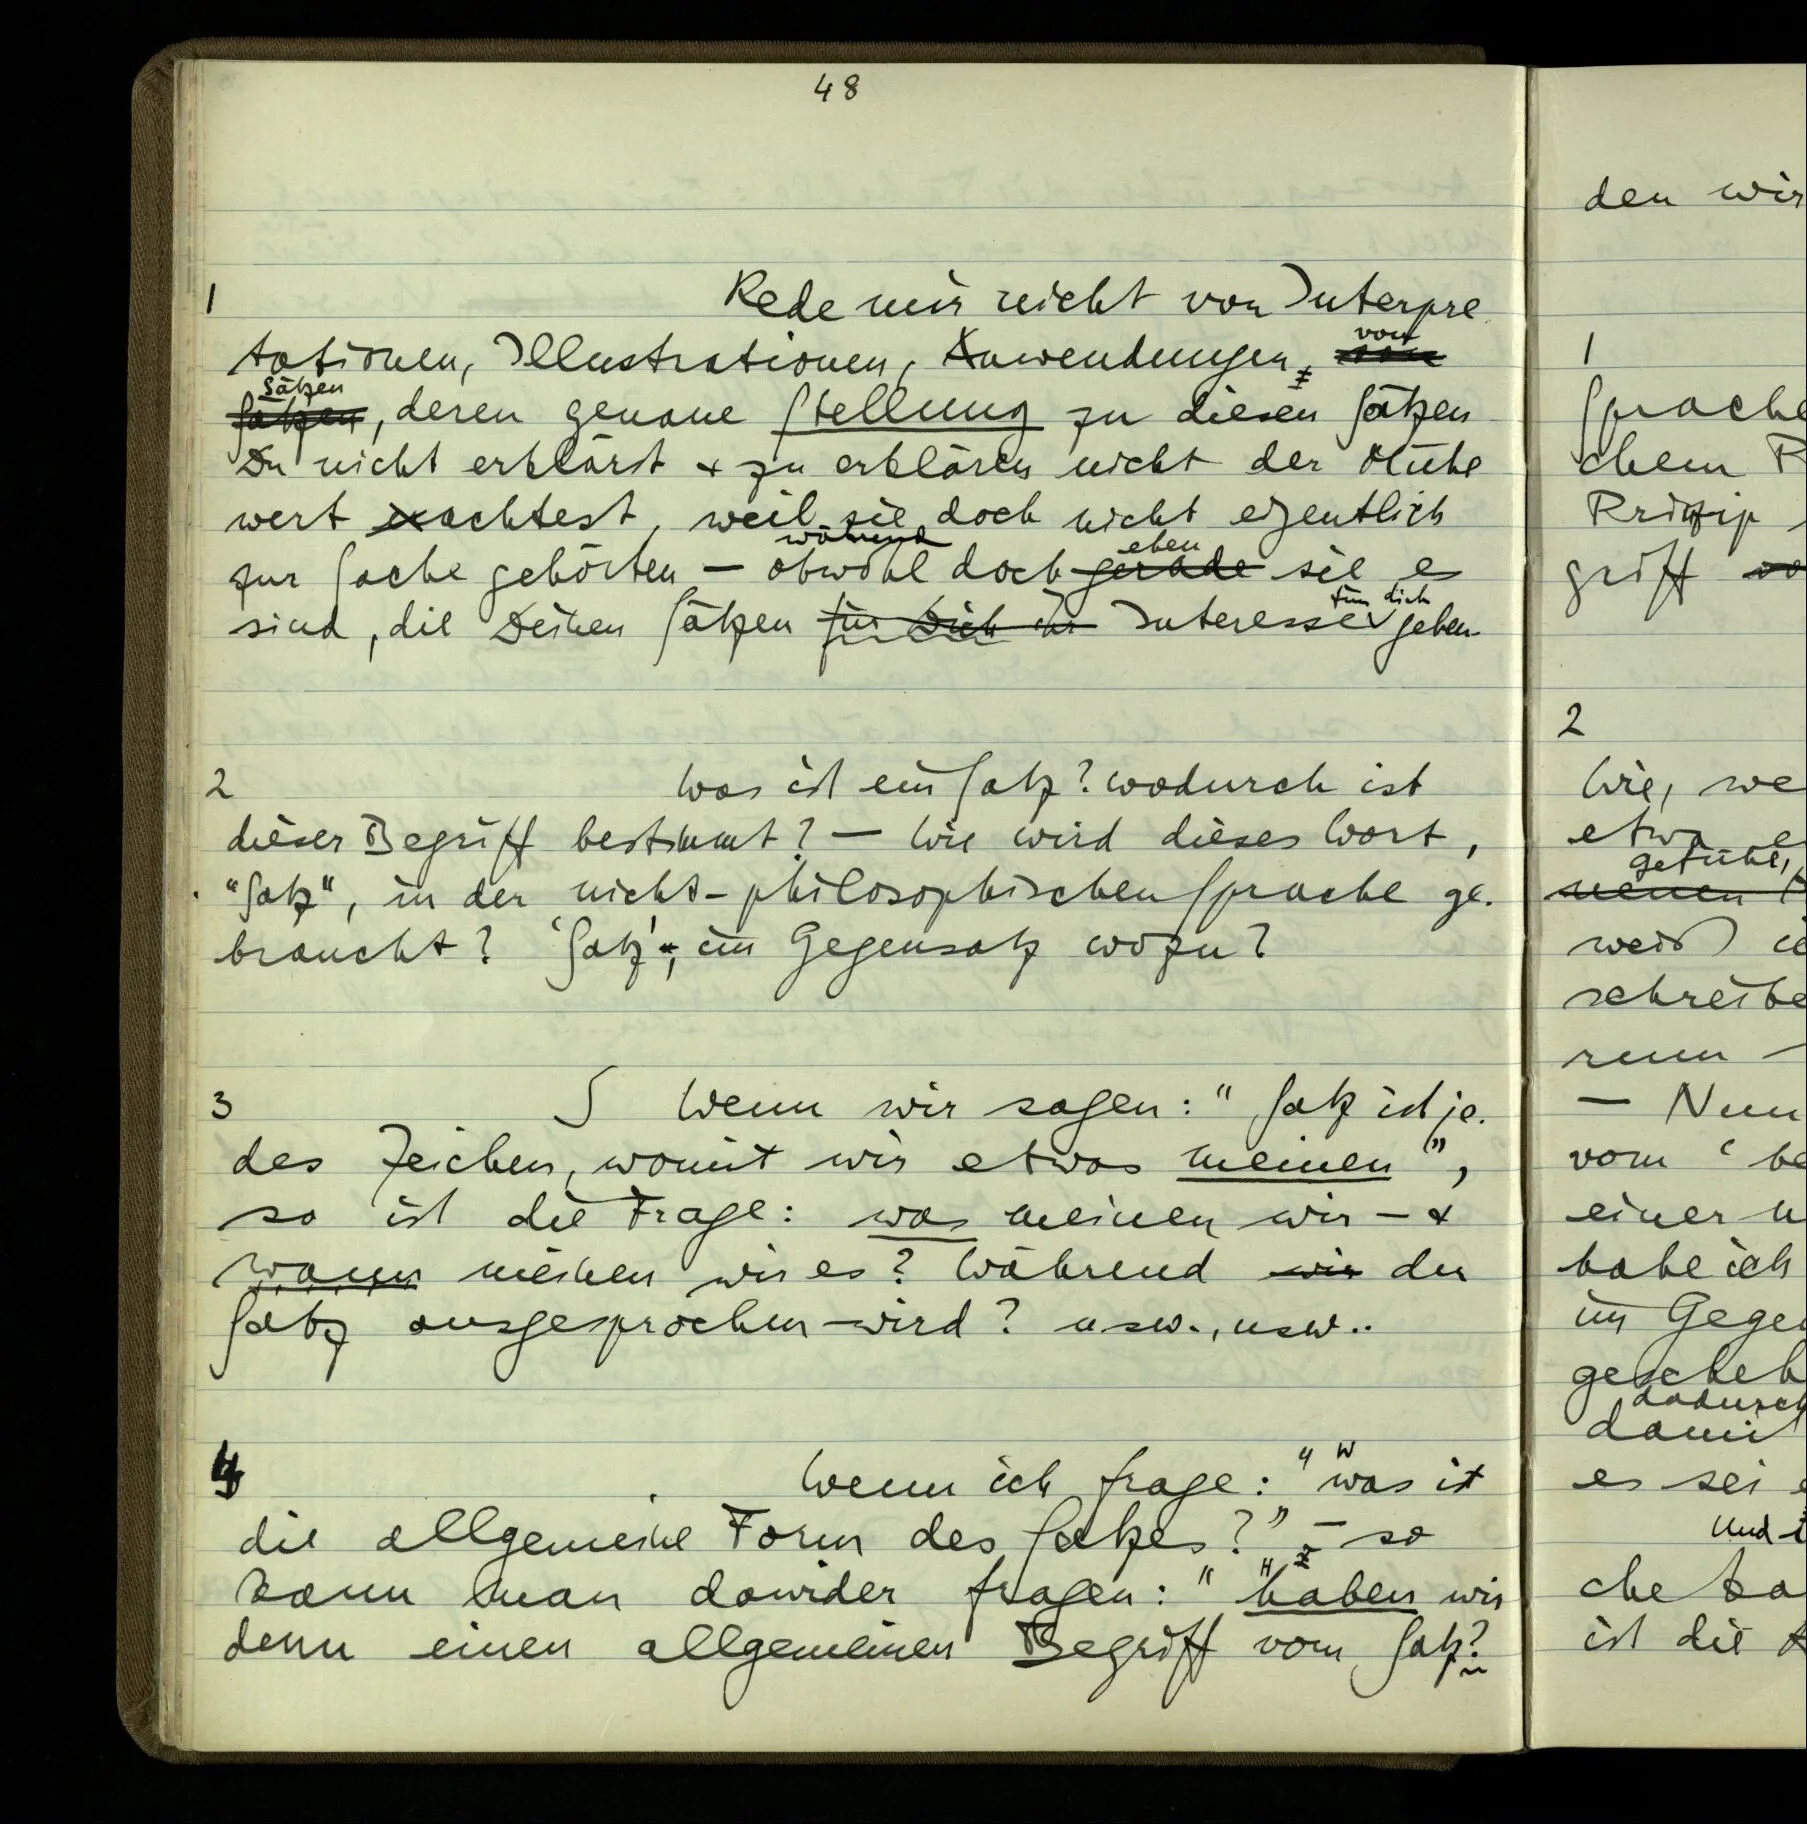 48
1
Rede mir nicht von Interpre
tationen, Illustrationen, Anwendungen,
von
von
Sätzen
Sätzen, deren genaue Stellung zu diesen Sätzen
Du nicht erklärst & zu erklären nicht der Mühe
wert achtest, weil sie doch nicht eigentlich
während
eben
zur Sache gehörten — obwohl doch gerade sie es
für dich
sind, die Deinen Sätzen für Dich ihr Interesse geben.
2
Was ist ein Satz? wodurch ist
dieser Begriff bestimmt? — Wie wird dieses Wort,
"Satz", in der nicht-philosophischen Sprache ge-
braucht? 'Satz', im Gegensatz wozu?
3
S Wenn wir sagen: "Satz ist je-
des Zeichen, womit wir etwas meinen",
so ist die Frage: was meinen wir — &
wann meinen wir es? Während wir der
Satz ausgesprochen wird? usw., usw..
4
W
Wenn ich frage: "was ist
die allgemeine Form des Satzes?" — so
H
kann man dawider fragen: "haben wir
denn einen allgemeinen Begriff vom Satz?
den wir
1
Sprache
chem
Prinzip
griff
2
Wie, we
etwa
gefühl,
neuen
weiß
schreibe
rum
— Nun
vom 'be
einer
habe ich
im Gege
gescheh
dadurch
damit
es sei
Und
che
ist die